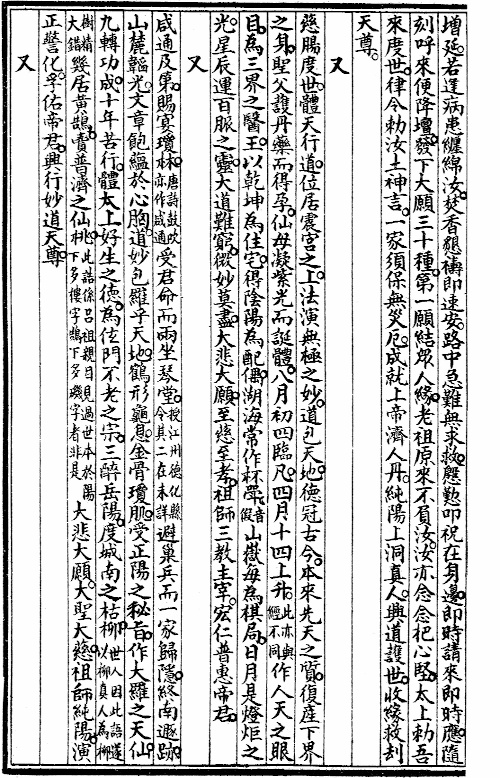 增延若逢病患纏綿汝焚香懇禱即速安路中急難無求救慇懃叩祝在身邊即時請來即時應隨
刻呼來便降壇發下大願三十種第一願結眾人緣老祖原來不負汝汝亦念念把心堅太上勅吾
來度世律令勅汝土神言一家須保無災厄成就上帝濟人丹純陽上洞真人興道護世收緣救刦
天尊
又
慈腸度世體天行道位居震宮之上法演無極之妙道包天地德冠古今本來先天之質復產下界
之身聖父護丹藥而得孕仙母凝紫光而誕體八月初四臨凡四月十四上升此亦與經不同作人天之眼
目為三界之醫王以乾坤為住宅得陰陽為配偶湖海常作杯斝音假山嶽每為棋局日月是燈炬之
光星辰運百脈之靈大道難窮微妙莫盡大悲大願至慈至孝祖師三教主宰宏仁普惠帝君
又
咸通及第賜宴瓊林唐詩鼓吹亦作咸通受君命而兩坐琴堂授江州德化縣令其二在未詳避巢兵而一家歸隱終南遯跡
山麓韜光文章飽蘊於心胸道妙包羅乎天地鶴形龜息金骨瓊肌受正陽之秘旨作大羅之天仙
九轉功成十年苦行體太上好生之德為玄門不老之宗三醉岳陽度城南之枯柳世人因此語遂以柳真人為柳
樹精大錯幾居黃鵠賣普濟之仙桃此誥係呂祖親目見過世本於陽下多樓字鵠下多磯字者非是大悲大願大聖大慈祖師純陽演
正警化孚佑帝君興行妙道天尊
又